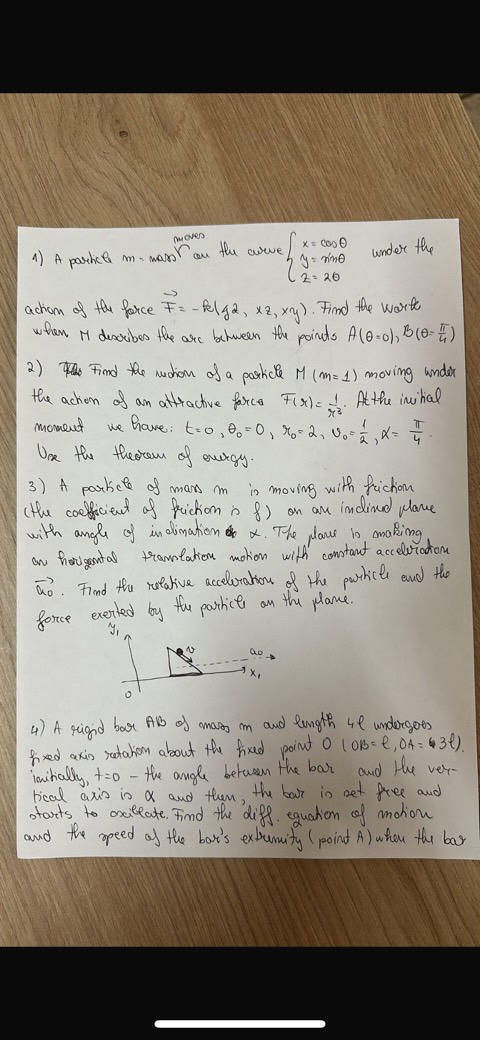 moves
1) A particle m-mass on the curve { x = cosθ under the
y = sinθ
z = 2θ
action of the force F⃗ = -k(yz, xz, xy). Find the work
when M describes the arc between the points A(θ=0), B(θ=π/4)
2) Find the motion of a particle M (m=1) moving under
the action of an attractive force F(r) = 1/r³. At the initial
moment we have: t=0, θ₀=0, r₀=2, v₀=1/2, α=π/4.
Use the theorem of energy.
3) A particle of mass m is moving with friction
(the coefficient of friction is f) on an inclined plane
with angle of inclination α. The plane is making
an horizontal translation motion with constant acceleration
a⃗₀. Find the relative acceleration of the particle and the
force exerted by the particle on the plane.
y₁
v
a₀
O
x₁
4) A rigid bar AB of mass m and length 4l undergoes
fixed axis rotation about the fixed point O (OB=l, OA=3l).
initially, t=0 - the angle between the bar and the ver-
tical axis is α and then, the bar is set free and
starts to oscillate. Find the diff. equation of motion
and the speed of the bar's extremity (point A) when the bar